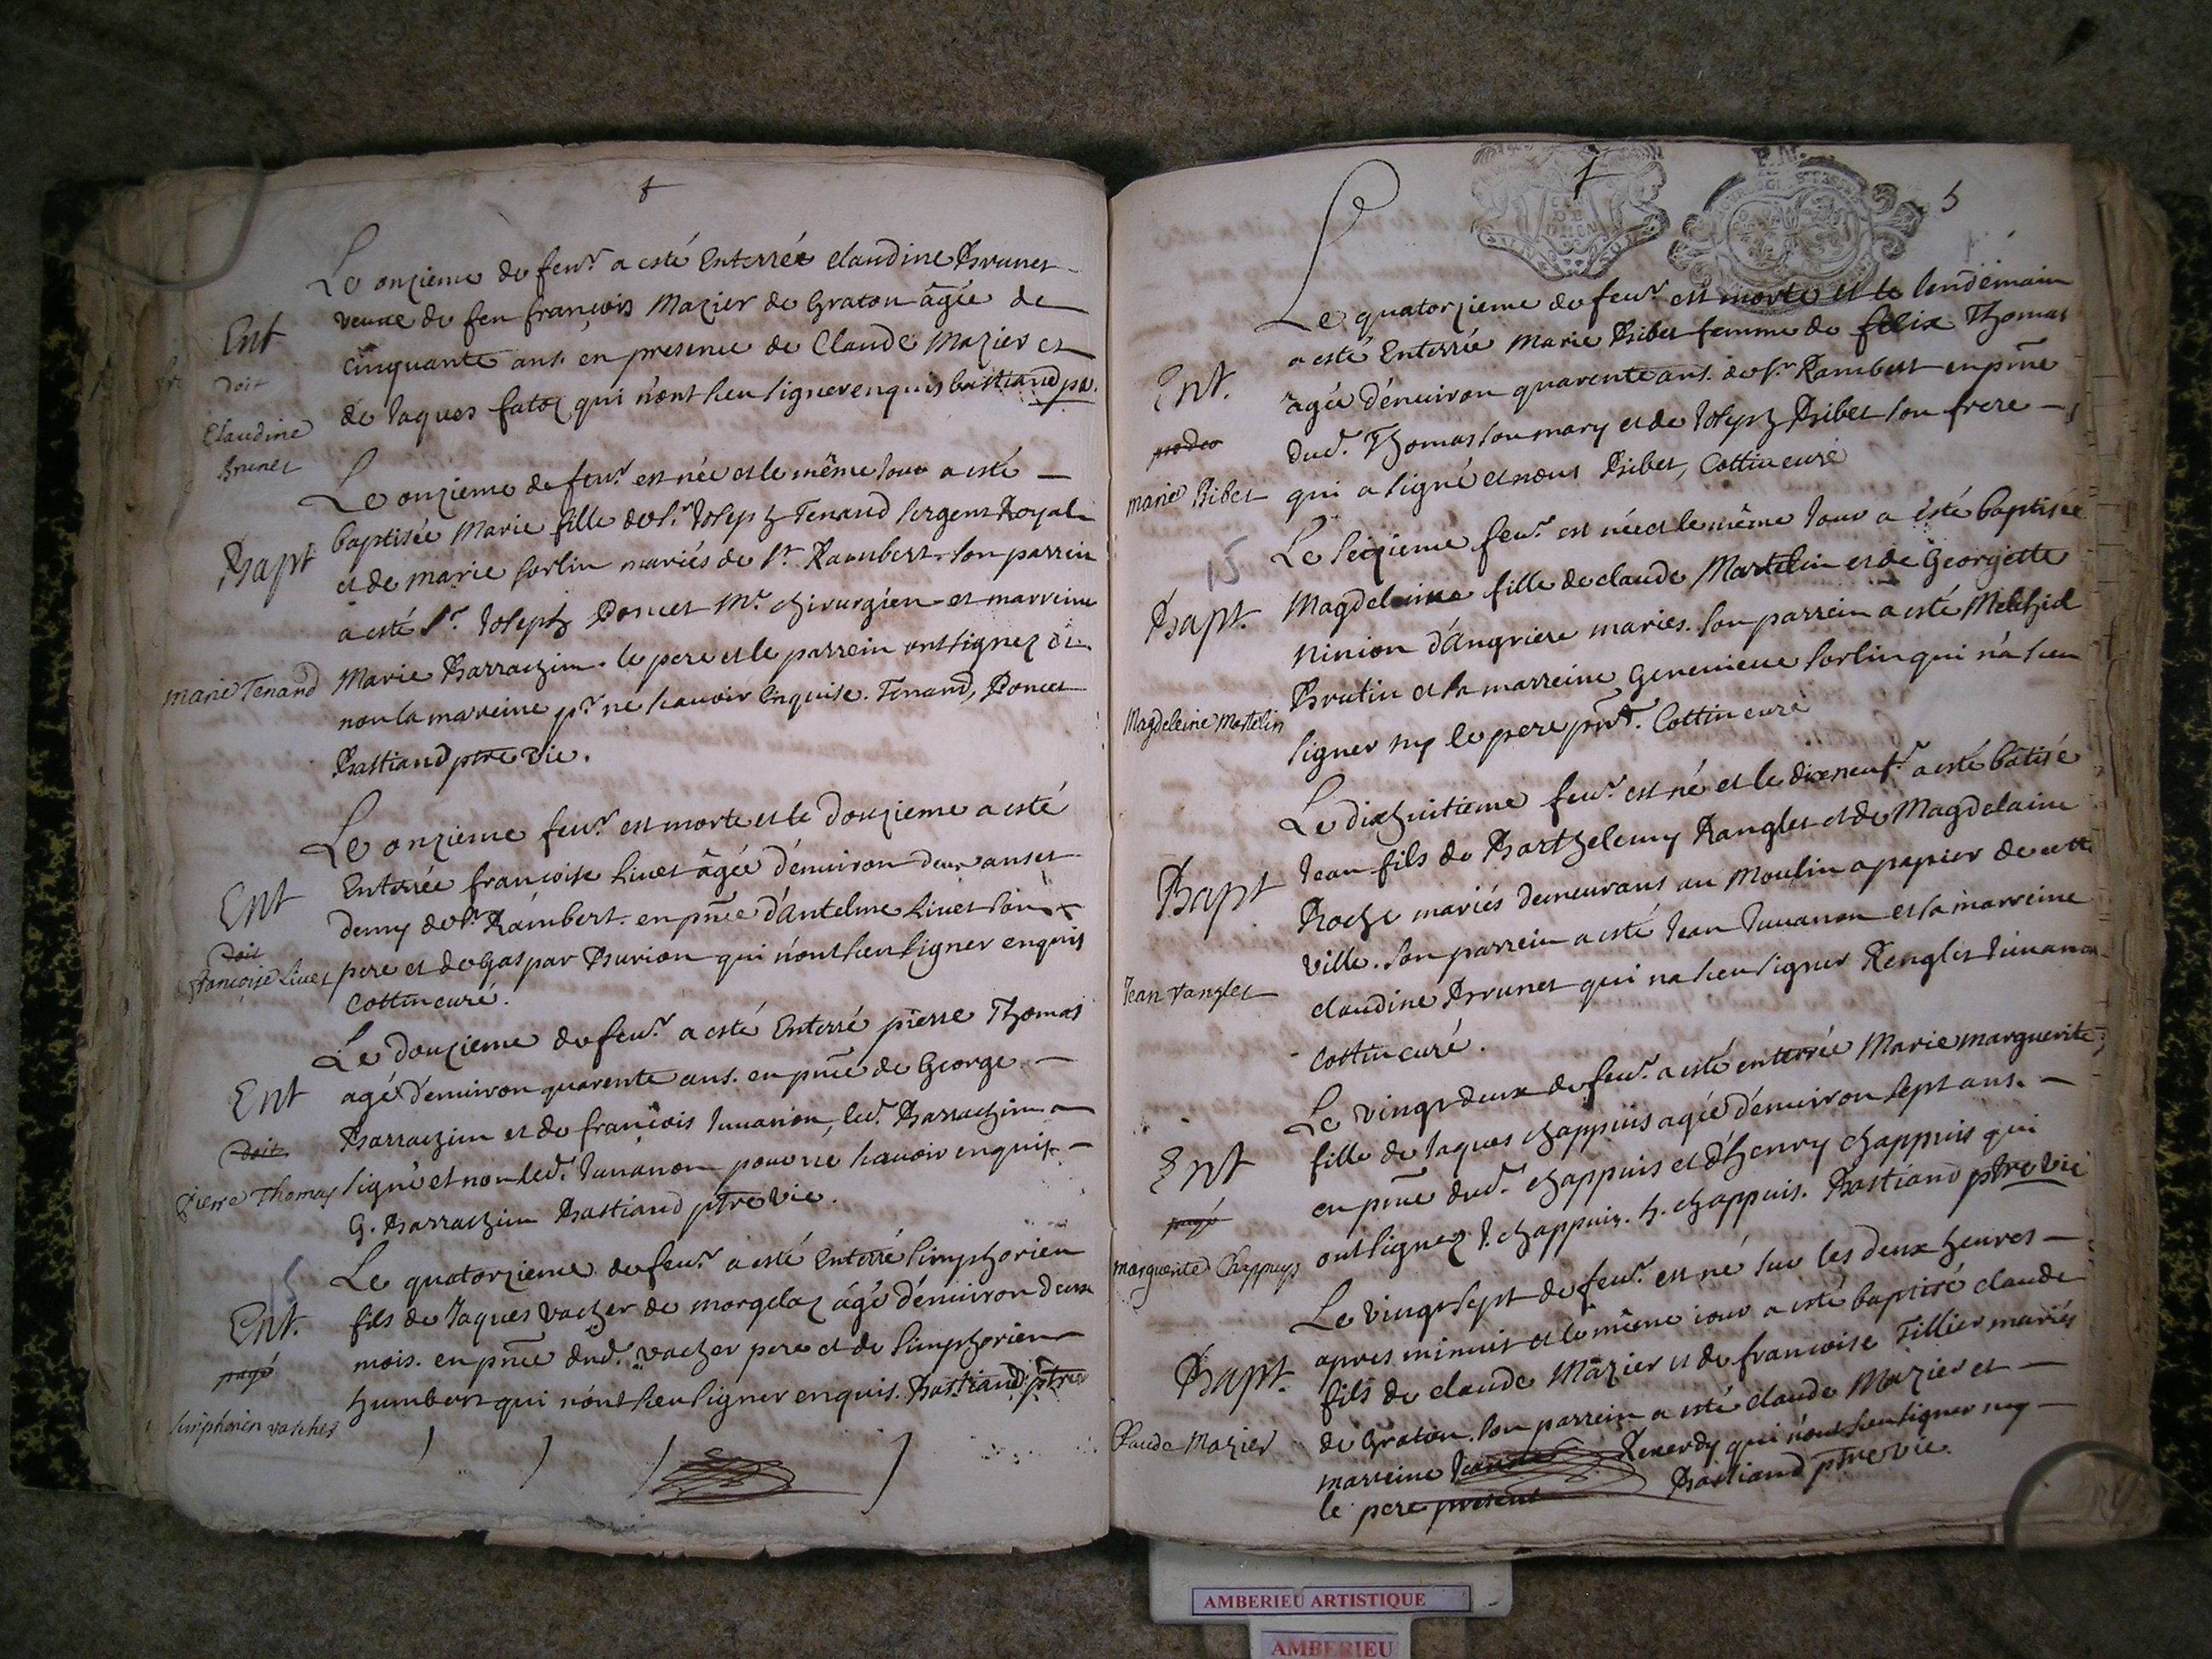 Le onzieme de feur. a esté Enterrée claudine Brunet
veuue de feu françois Mazier de Graton âgée de
Ent
cinquante ans. en presence de Claude Mazier et
Doit
de Jaques fatoz qui n'ont sceu signer enquis bastiand ptre.
Claudine
Brunet
Le onzieme de feur. est née et le même Jour a esté
baptisée Marie fille de Sr. Joseph Tenand sergent Royal
Bapt
et de marie sorlin mariés de St. Rambert. son parrein
a esté Sr. Joseph Doncet Mr. chirurgien et marreine
Marie Barrachim. le pere et le parrein ont signez et
marie Tenand
non la marreine pr. ne scavoir Enquise. Tenand, Doncet
Bastiand ptre vic.
Le onzieme feur. est morte et le douzieme a esté
Enterrée francoise Liuet âgée d'enuiron deux ans et
Ent
demy de St. Rambert. en pnce d'Antelme Liuet son
Doit
pere et de Gaspar Burion qui n'ont sceu signer enquis
francoise Liuet
Cottin curé.
Le douzieme de feur. a esté Enterré pierre Thomas
Ent
agé d'enuiron quarente ans. en pnce de George
Barrachim et de francois Juuanon, led. Barrachim a
Doit
signé et non led. Juuanon pour ne scauoir enquis
Pierre Thomas
G. Barrachim Bastiand ptre vic.
15
Le quatorzieme de feur. a esté Enterré simphorien
fils de Jaques vacher de morgelaz âgé d'enuiron deux
Ent.
mois. en pnce dud. vacher pere et de simphorien
payé
humbert qui n'ont sceu signer enquis. Bastiand ptre
simphorien vascher
5
Le quatorzieme de feur. est morte et le lendemain
a esté Enterrée Marie Bibet femme de felix Thomas
Ent.
agée d'enuiron quarente ans. de St. Rambert en pnce
pro deo
dud. Thomas son mary et de Joseph Bibet son frere
marie Bibet
qui a signé et nous Bibet, Cottin curé
15
Le seizieme feur. est née et le même Jour a esté baptisée
Bapt.
Magdeleine fille de claude Martelin et de Georgette
Ninion d'angriere mariés. son parrein a esté Melchiol
Brutin et la marreine Geneuieue sorlin qui n'a sceu
Magdeleine Mattelin
signer ny le pere pnt. Cottin curé
Le dixhuitieme feur. est né et le dixneuf. a esté batisé
Jean fils de Barthelemy Ranglet et de Magdelaine
Bapt
Roche mariés demeurans au Moulin a papier de cette
ville. son parrein a esté Jean Juuanon et la marreine
Jean ranglet
claudine Brunet qui na sceu signer Renglet Juuanon
Cottin curé.
Le vingt deux de feur. a esté enterrée Marie marguerite
fille de Jaques chappuis agée d'enuiron sept ans.
Ent
en pnce dud. chappuis et d'henry chappuis qui
payé
ont signez J. chappuis. h. chappuis. Bastiand ptre vic
marguerite Chappuys
Le vingt sept de feur. est né sur les deux heures
apres minuit et le même iour a esté baptisé claude
Bapt.
fils de claude Mazier et de francoise Tillier mariés
de Graton. son parrein a esté claude Mazier et
Claude Mazier
marreine Renerdy qui n'ont sceu signer ny
le pere present Bastiand ptre vic.
AMBERIEU ARTISTIQUE
AMBERIEU